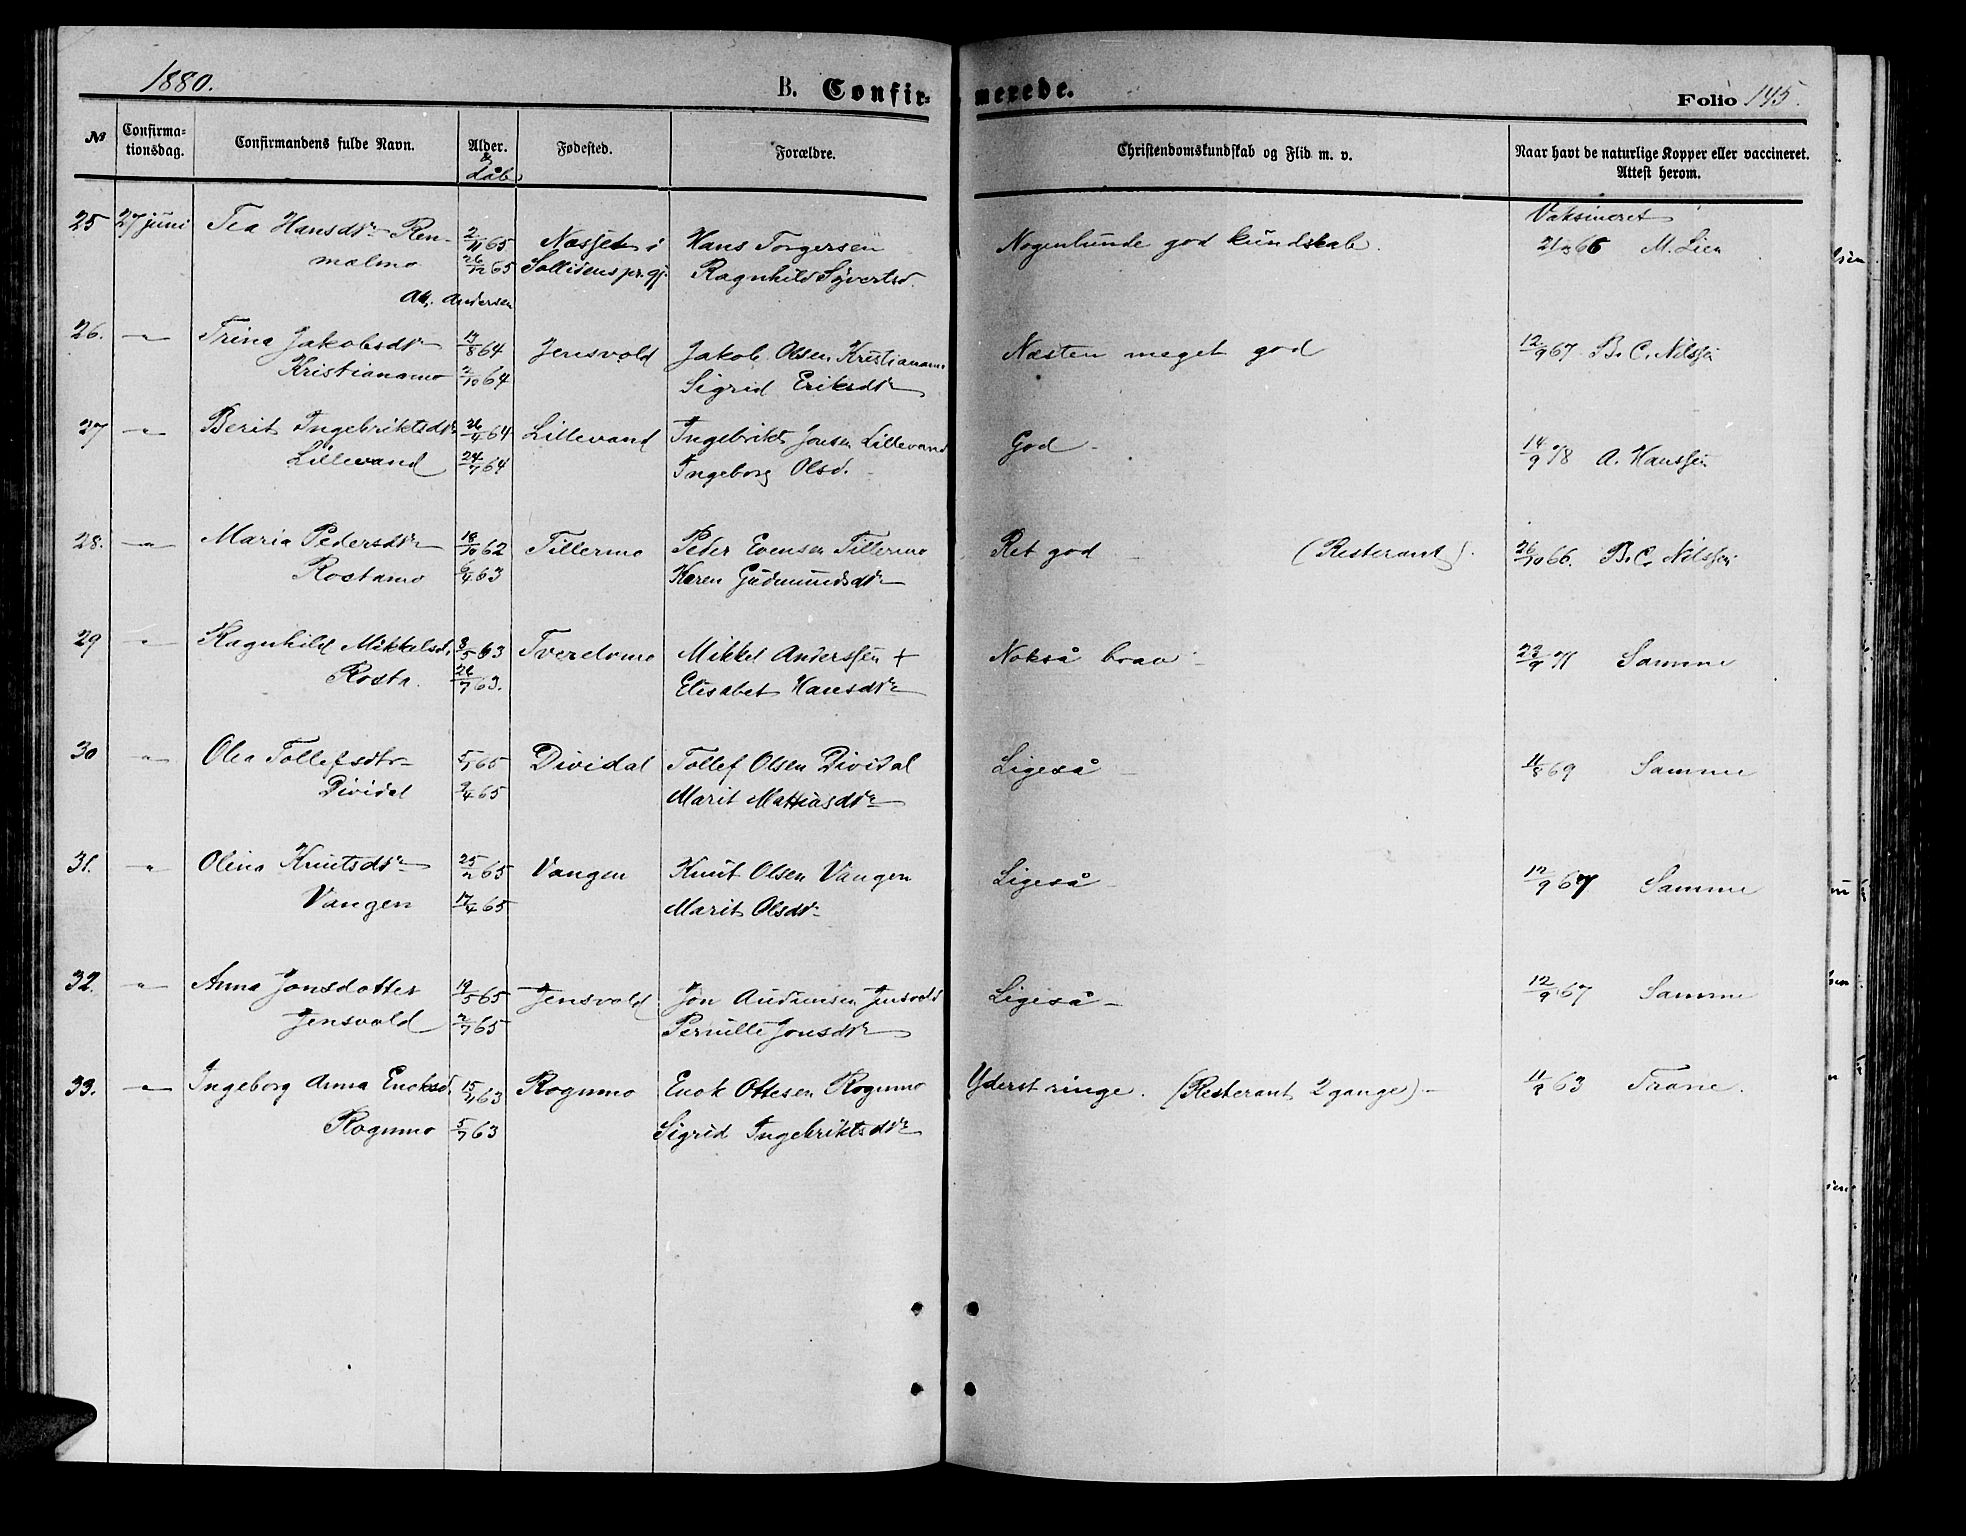 1880. B. Confir= merede. Folio 145.
№ Confirma=tionsdag. Confirmandens fulde Navn. Alder. & dåb. Fødested. Forældre. Christendomskundskab og Flid m. v. Naar havt de naturlige Kopper eller vaccineret. Attest herom.
Vaksineret
25 27 juni Tea Hansdtr Ren- 2/11 65 Næsjet i Hans Torgersen Nogenlunde god kundskab. 66 M. Lien
malmo 26/12 65 Sollidens pr.gj. Ragnhild Syvertsd.
Andersen
26. -"- Trina Jakobsdtr 13/8 64 Jensvold Jakob Olsen Kristianamo Næsten meget god 12/9 67 B. C. Nilssen
Kristianamo 2/10 64 Sigrid Eriksdtr
27 -"- Berit Ingebriktsdtr 26/4 64 Lillevand Ingebrikt Jonsen Lillevand God - 14/9 78 A. Hanssen
Lillevand 24/7 64 Ingeborg Olsd. -
28. -"- Maria Pedersdtr 18/10 62 Tillermo Peder Evensen Tillermo Ret god (Resterant). 26/10 66. B. C. Nilssen
Rostamo 6/4 63 Karen Gudmundsdtr
29 -"- Ragnhild Mikkelsd. 3/5 63 Tverelvmo Mikkel Anderssen + Nokså brav - 22/9 71 Samme
Rosta. 26/7 63. Elisabet Hansdtr
30 -"- Olea Tollefsdtr 5/1 65 Dividal Tollef Olsen Dividal Ligeså - 11/8 69 Samme
Dividal 9/4 65 Marit Mattiasdtr
31. -"- Olina Knutsdtr 25/2 65 Vangen Knut Olsen Vangen Ligeså - 12/9 67 Samme
Vangen 17/4 65 Marit Olsdtr
32. -"- Anna Jonsdotter 19/5 65 Jensvold Jon Audunsen Jensvold Ligeså - 12/9 67 Samme
Jensvold 2/7 65 Pernille Jonsdtr
33. -"- Ingeborg Anna Enoksd. 15/4 63 Rognmo Enok Ottesen Rognmo Yderst ringe. (Resterant 2 gange) - 11/8 63 Trane.
Rognmo 5/7 63 Sigrid Ingebriktsdtr